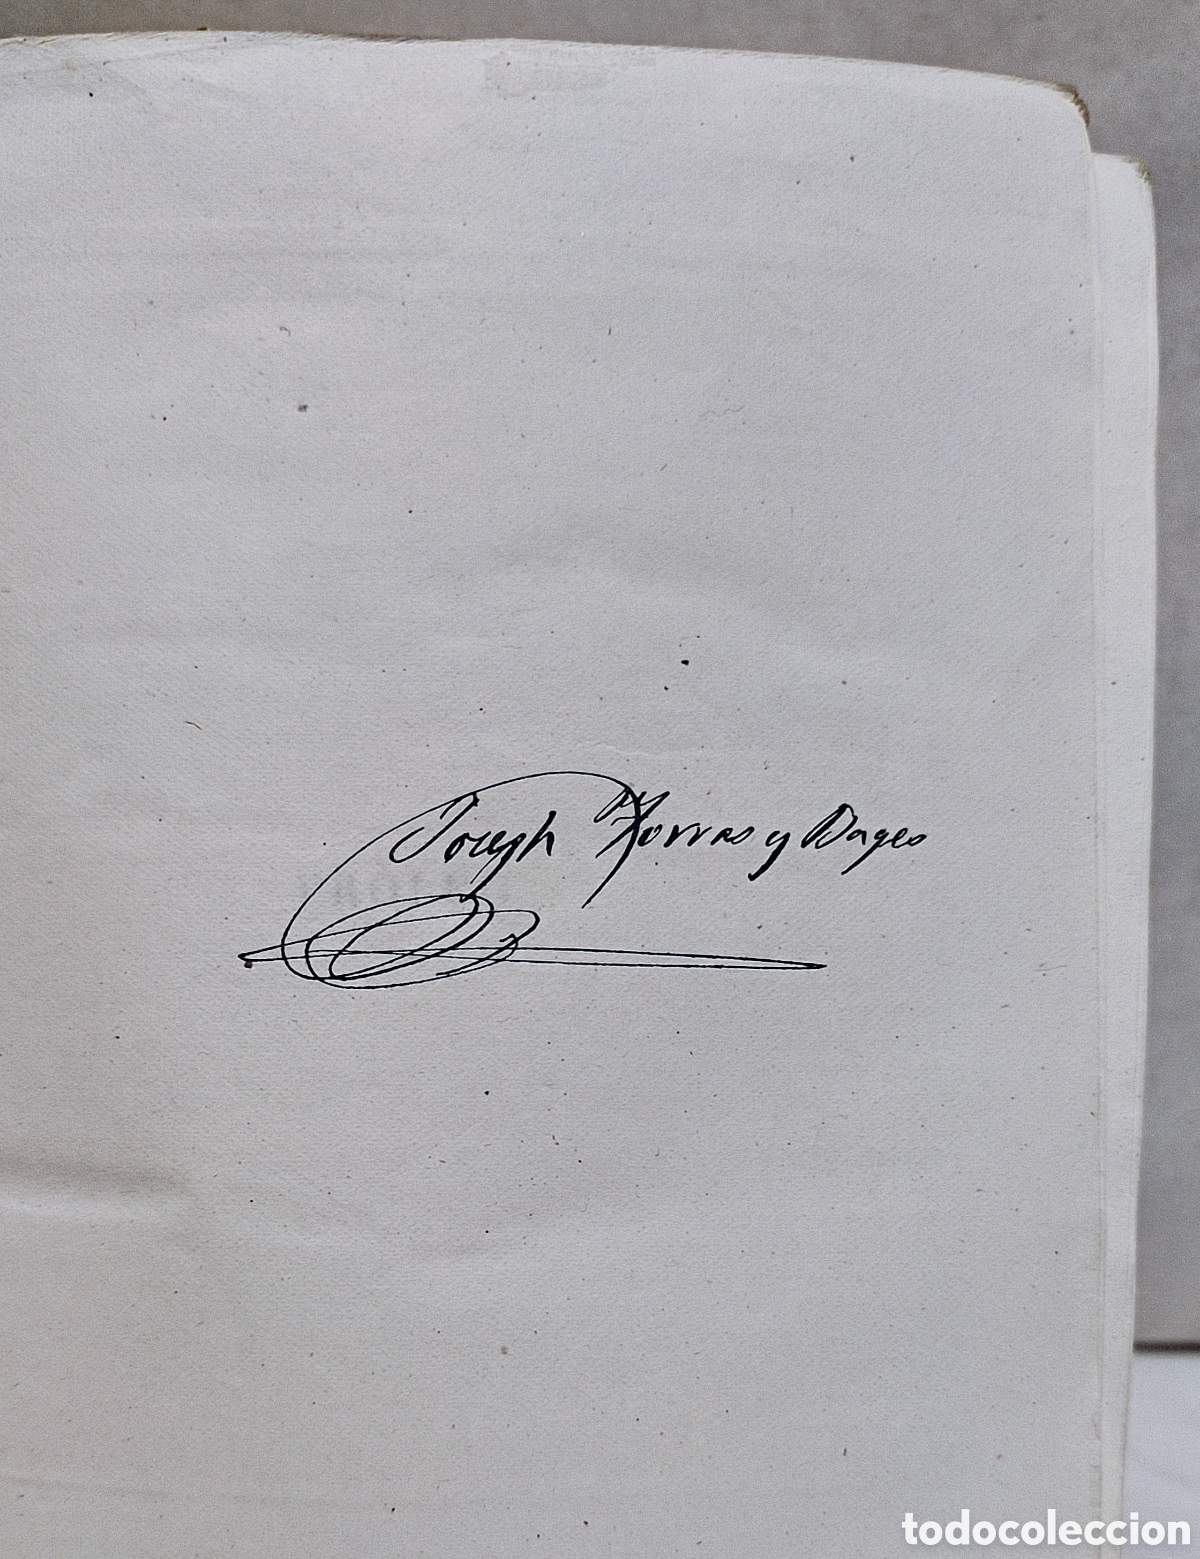 Joseph Torras y Bages
todocoleccion